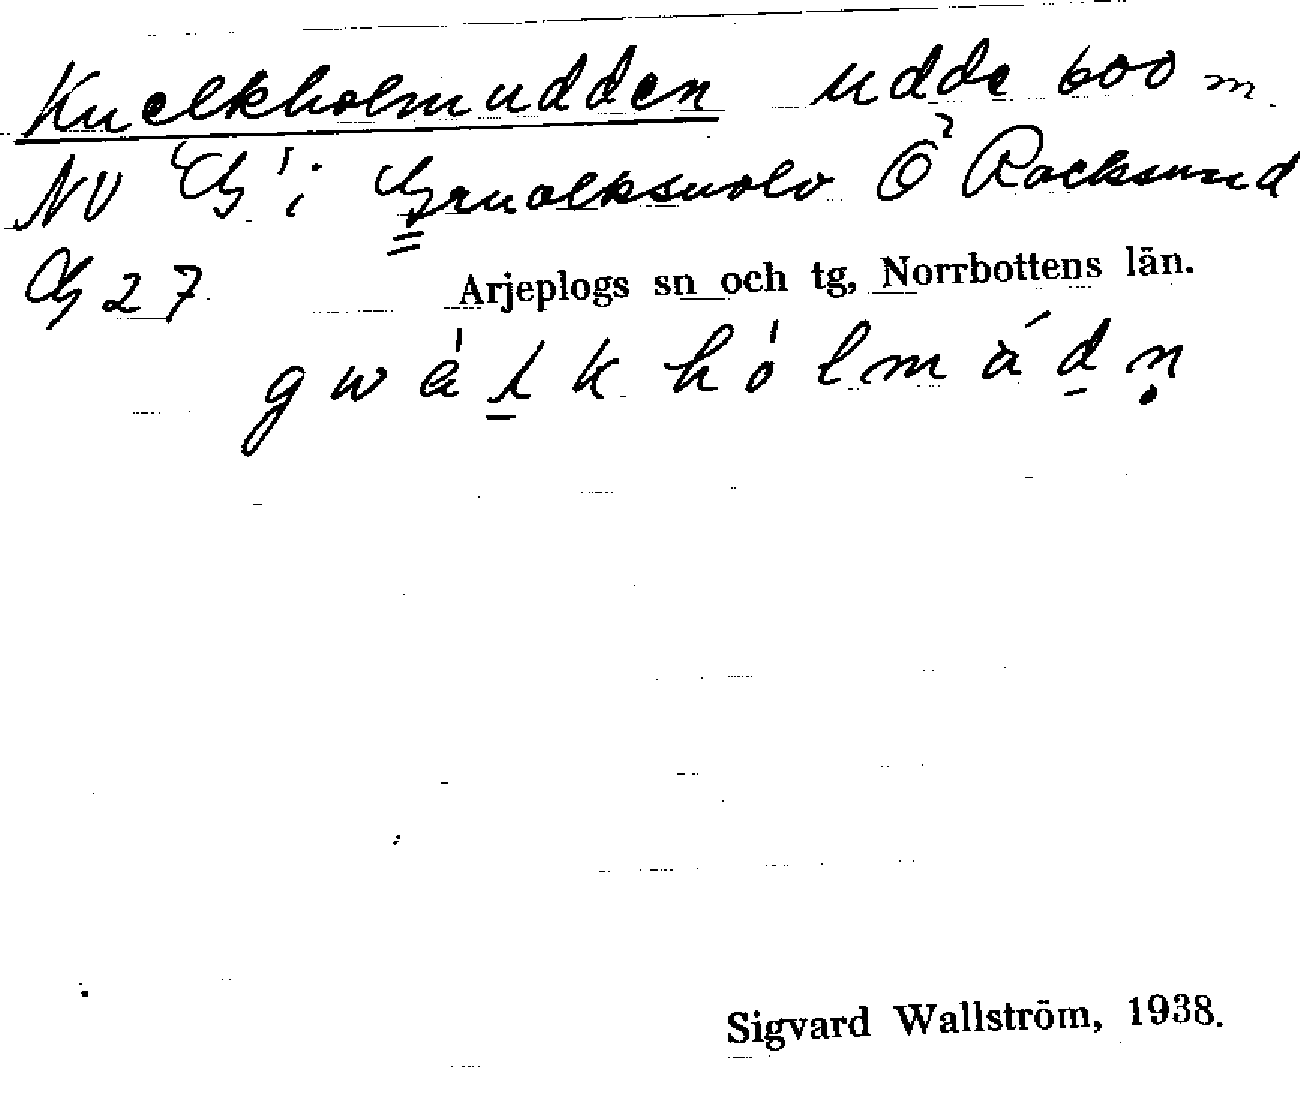 Kuelkholmudden udde 600 m
NV G i Gruolksuolo Ö Racksund
G 27 Arjeplogs sn och tg, Norrbottens län.
g w a̍ l̲ k h o̍ l m á d̲ ṇ
Sigvard Wallström, 1938.